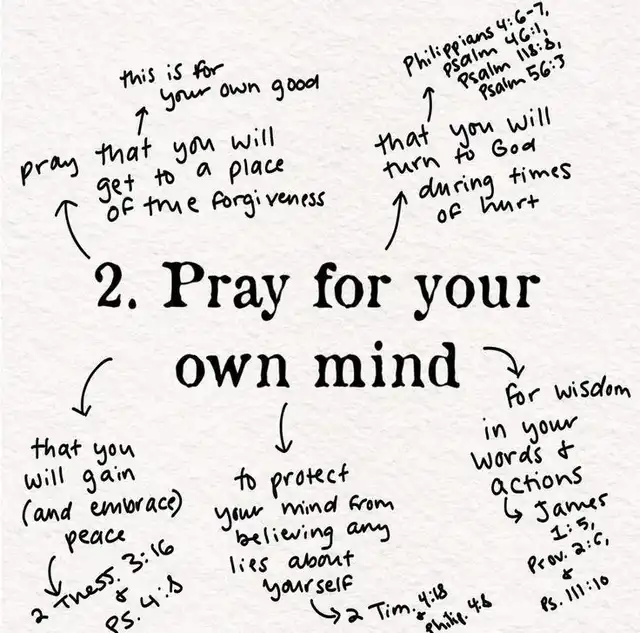 this is for
your own good
pray that you will
get to a place
of true forgiveness
Philippians 4:6-7,
Psalm 46:1,
Psalm 118:8,
Psalm 56:3
that you will
turn to God
during times
of hurt
2. Pray for your
own mind
that you
will gain
(and embrace)
peace
2 Thess. 3:16
&
PS. 4:8
to protect
your mind from
believing any
lies about
yourself
2 Tim. 4:18
&
Philip. 4:8
for wisdom
in your
words &
actions
James
1:5,
Prov. 2:6,
&
Ps. 111:10